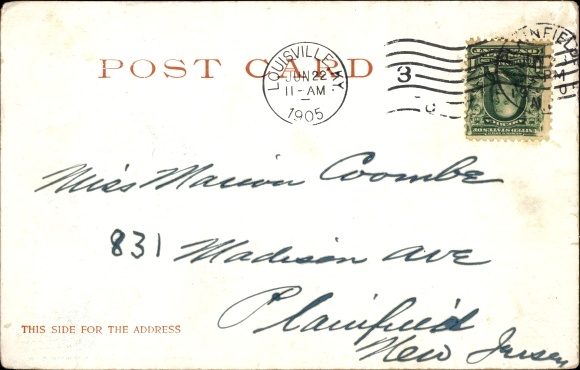 POST CARD
LOUISVILLE, KY.
JUN 22
11-AM
1905
3
Miss Marion Coombe
831 Madison Ave
Plainfield
New Jersey
THIS SIDE FOR THE ADDRESS